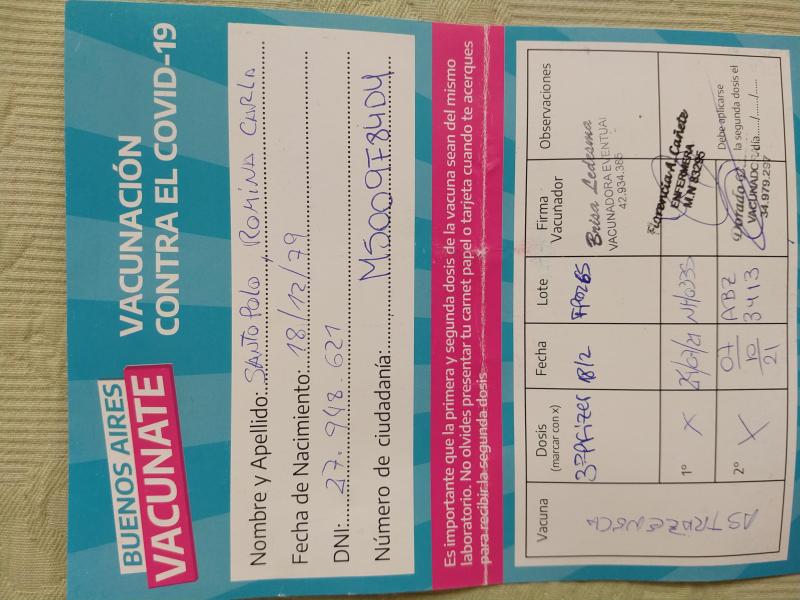 BUENOS AIRES
VACUNATE
VACUNACIÓN
CONTRA EL COVID-19
Nombre y Apellido: SANTOPOLO, ROMINA CARLA
Fecha de Nacimiento: 18/12/79
DNI: 27.948.621
Número de ciudadanía: M5009F84D4
Es importante que la primera y segunda dosis de la vacuna sean del mismo
laboratorio. No olvides presentar tu carnet papel o tarjeta cuando te acerques
para recibir la segunda dosis
Vacuna Dosis Fecha Lote Firma Observaciones
(marcar con x) Vacunador
3º Pfizer 18/2 Brisa Ledesma
VACUNADORA EVENTUAL
42.934.385
ASTRAZENECA
1º X 24/07/21 Florencia A. Cañete
ENFERMERA
M.N 83285
2º X 07/10/21 ABZ 3413
VACUNADOR
34.979.297
Debe aplicarse
la segunda dosis el
día...../...../.....